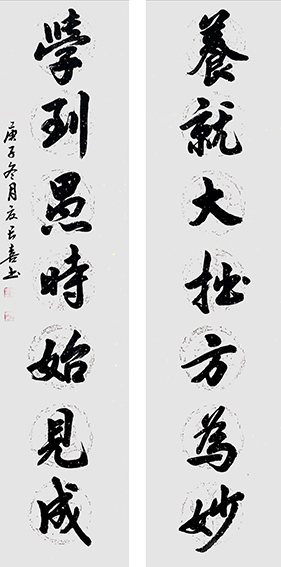 養就大拙方為妙
學到愚時始見成
庚子冬月友君喜书